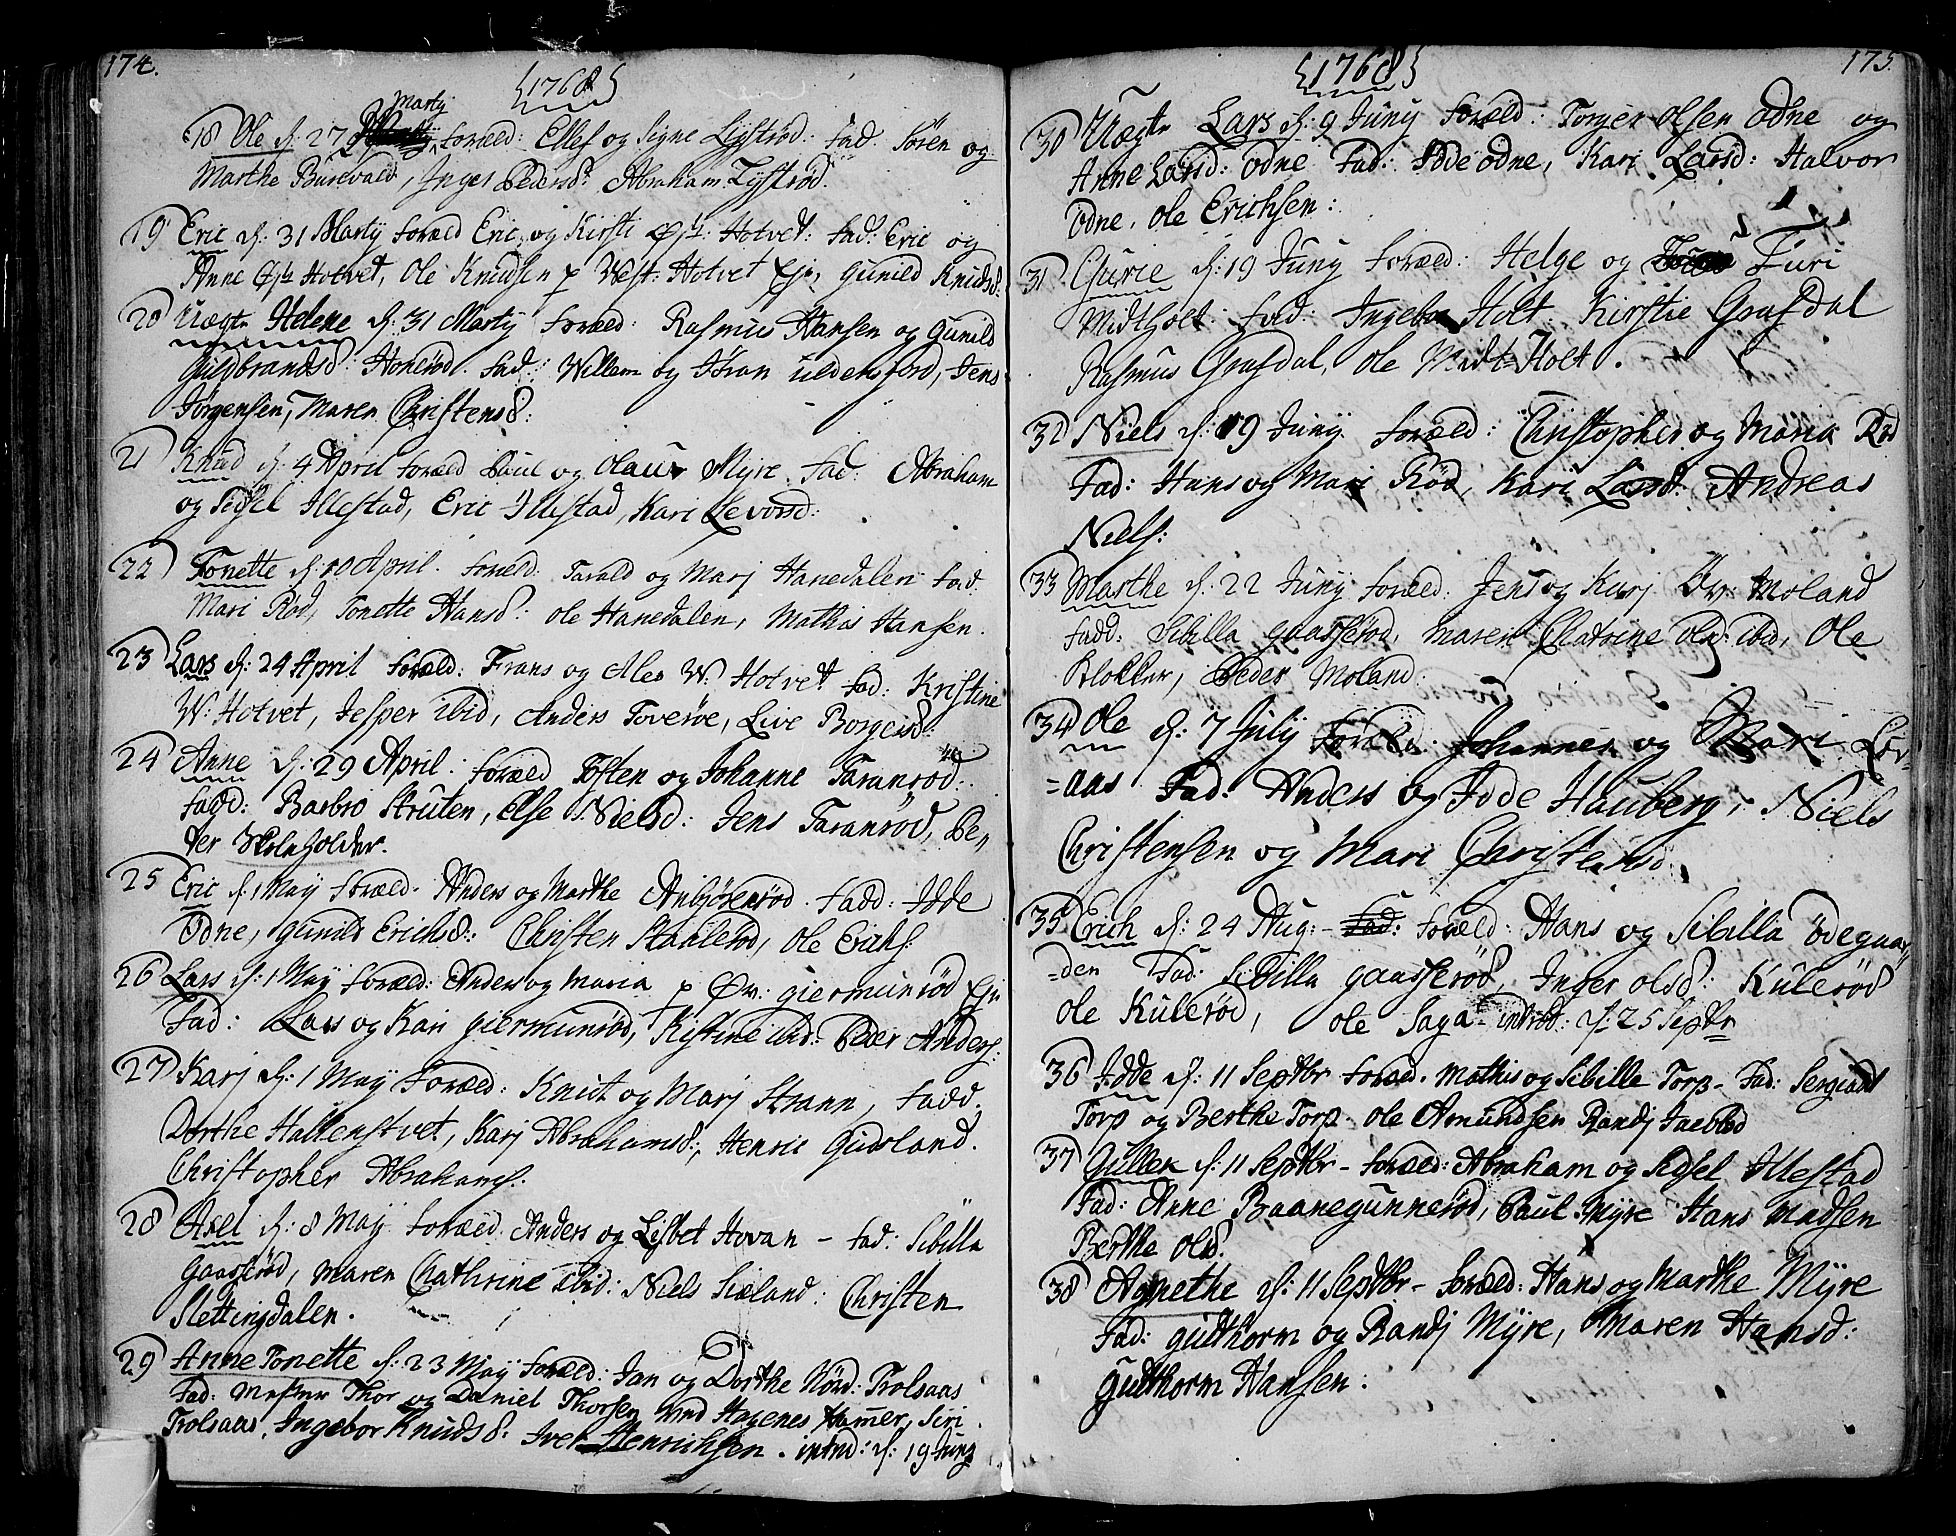 174.
{1768}
Marty
18 Ole d: 27 foræld: Ellef og Signe Lystrød: fad. Søren og
Marthe Burevald, Inger Pedersd: Abraham Lystrød.
19 Eric d: 31 Marty foræld Eric og Kirsti Øst: Hotvet: fad: Eric og
Anne Øst Hotvet, Ole Knudsen p West: Hotvet Eje, Gunild Knudsd:
20 Uægte Helene d: 31 Marty foræld: Rasmus Hansen og Gunild
Guldbrandsd: Honerød. fad: Willem og Idian uldensford, Jens
Jørgensen, Maren Christensd:
21 Knud d: 4 April foræld Paul og Olaug Myre. fad: Abraham
og Sidsel Illestad, Eric Illestad, Kari Levorsd:
22 Tonette d: 10 April. foræld: Tarald og Marj Hanedalen fad.
Mari Rød, Tonette Hansd: Ole Hanedalen, Mathis Hansen.
23 Lars d: 24 April foræld: Frans og Ales W: Hotvet fad: Kristine
W: Hotvet, Jesper ibid, Anders Toverøe, Live Borgersd:
24 Anne d: 29 April: foræld Tosten og Johanne Taranrød:
fadd: Barbro Struten, Else Nielsd: Jens Taranrød, Pe-
der Skoleholder.
25 Eric d: 1 May foræld: Anders og Marthe Anbiörnrød. fadd: Idde
Odne, Gunild Erichsd: Christen Staalerød, Ole Erichs:
26 Lars d: 1 May foræld: Anders og Maria p Øv: giermunrød Eje
Fad: Lars og Kari giermunrød, Kistine ibid: Peder Anders:
27 Karj d: 1 May foræld: Knut og Marj Strann, fadd.
Dorthe Hallenstvet, Karj Abrahamsd:, Henric Gusland.
Christopher Abrahams.
28 Axel d: 8 May foræld: Anders og Lisbet Hovan - fad: Sibilla
Gaasserød, Maren Chathrine ibid: Niels Sieland: Christen
Slettingdalen.
29 Anne Tonette d: 23 May foræld: Jan og Dorthe Nörd: Trolsaas
Fad: Mester Thor og Daniel Thorsen ved Hagenes Hamer, Siri
Trolsaas, Ingebor Knudsd: Iver Henrichsen. introd: d: 19 Juny
175.
{1768}
30 Uægte Lars d: 9 Juny foræld: Torger Olsen Odne og
Anne Larsd: Odne Fad: Idde Odne, Kari Larsd: Halvor
Odne, Ole Erichsen:
31 Gurie d: 19 Juny foræld: Helge og Turi
Midtholt fad: Ingebor Holt Kirstie Grafdal
Rasmus Grafdal, Ole Midt-Holt.
32 Niels d: 19 Juny foræld: Christopher og Maria Rød
Fad: Hans og Mari Rød, Kari Larsd: Andreas
Niels:
33 Marthe d: 22 Juny foræld: Jens og Karj Øv: Moland
fadd: Sibilla gaasserød, Maren Chatrine Olsd: ibid, Ole
Klokker, Peder Moland
34 Ole d: 7 July foræld. Johannes og Mari Lov-
=aas Fad: Anders og Idde Hauberg, Niels
Christensen og Mari Christensd:
35 Erich d: 24 Aug: - Fad: foræld: Hans og Sibilla ödegaar-
=den Fad: Sibilla gaasserød, Inger olsd: Kulerød
Ole Kulerød, Ole Saga - introd: d: 25 Septbr
36 Idde d: 11 Septbr foræld. Mathis og Sibille Torp - fad:
Torp og Berthe Torp - Ole Amundsen Randj
37 Gullek d: 11 Septbr - foræld: Abraham og Sidsel Illestad
Fad: Anne Baanegunnerød, Paul Myre Hans Madsen
Berthe Olsd.
38 Agnethe d: 11 Septbr - foræld: Hans og Marthe Myre
Fad: gudthorm og Randj Myre, Maren Hansd:
gudthorm Hansen: